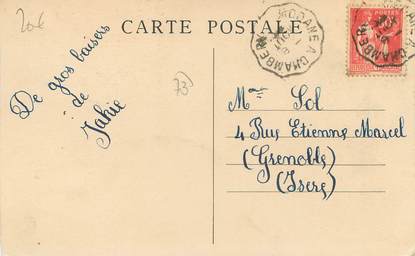 20€
CARTE POSTALE
MODANE A CHAMBERY
De gros baisers
de
73
Mme Sol
4 Rue Etienne Marcel
(Grenoble)
(Isere)